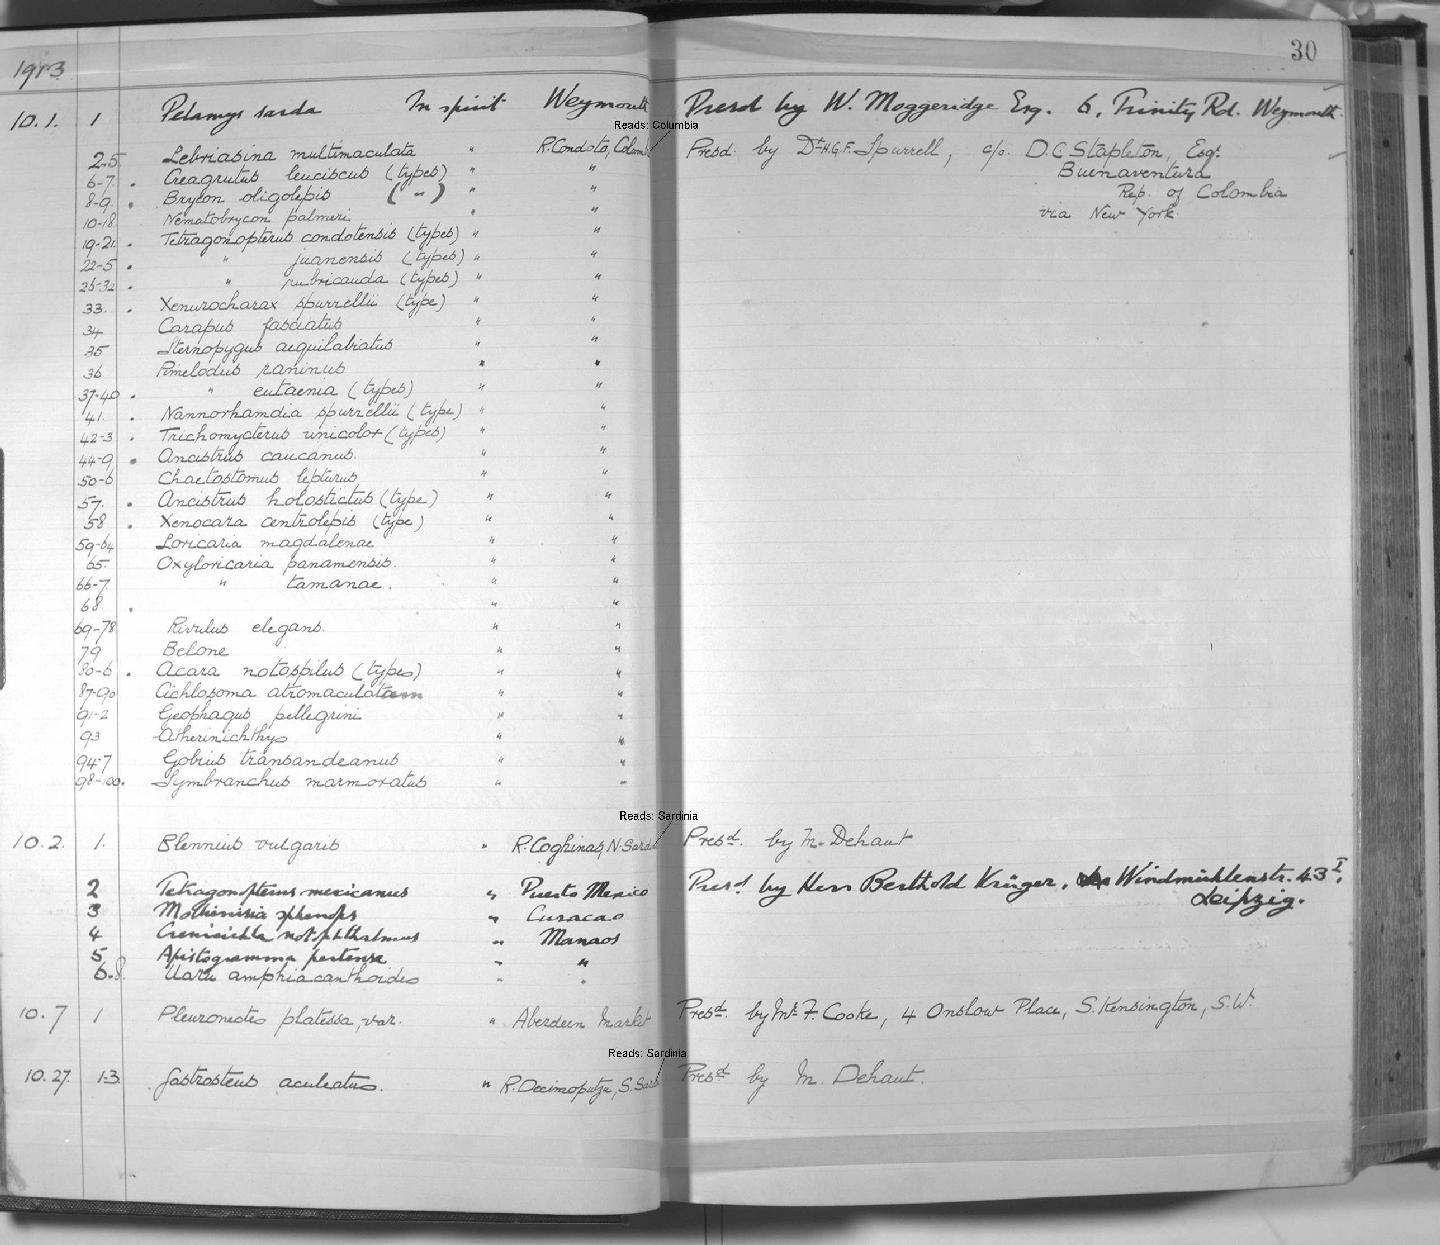 30
1913
10.1. 1 Pelamys sarda In spirit Weymouth Presd by W. Moggeridge Esq. 6, Trinity Rd. Weymouth.
Reads: Columbia
2-5. Lebriasina multimaculata " R. Condoto, Columb Presd. by Dr H.G.F. Spurrell, c/o. D.C. Stapleton, Esq.
6-7. Creagrutus leuciscus (types) " " Buenaventura
8-9. Brycon oligolepis ( " ) " " Rep. of Colombia
10-18 Nematobrycon palmeri " " via New York.
19-21. Tetragonopterus condotensis (types) " "
22-5 " juanensis (types) " "
26-32 " rubricauda (types) " "
33. Xenurocharax spurrellii (type) " "
34 Carapus fasciatus " "
35 Sternopygus aequilabiatus " "
36 Pimelodus raninus " "
37-40 " eutaenia (types) " "
41. Nannorhamdia spurrellii (type) " "
42-3 Trichomycterus unicolor (types) " "
44-9 Ancistrus caucanus. " "
50-6 Chaetostomus lepturus " "
57. Ancistrus holostictus (type) " "
58 Xenocara centrolepis (type) " "
59-64 Loricaria magdalenae " "
65. Oxyloricaria panamensis. " "
66-7 " tamanae. " "
68 " "
69-78 Rivulus elegans. " "
79 Belone " "
80-6 Acara notospilus (types) " "
87-90 Cichlosoma atromaculatum " "
91-2 Geophagus pellegrini " "
93 Atherinichthys " "
94-7 Gobius transandeanus " "
98-100. Symbranchus marmoratus " "
Reads: Sardinia
10.2. 1. Blennius vulgaris " R. Coghinas, N. Sard Presd. by M. Dehaut
2 Tetragonopterus mexicanus " Puerto Mexico Presd by Herr Berthold Krüger, Windmühlenstr. 43 I,
3 Mollienisia sphenops " Curacao Leipzig.
4 Crenicichla notophthalmus " Manaos
5 Apistogramma pertense " "
6-8 Uaru amphiacanthoides " "
10.7 1 Pleuronectes platessa, var. " Aberdeen Market Presd. by Mr F. Cooke, 4 Onslow Place, S. Kensington, S.W.
Reads: Sardinia
10.27. 1-3 Gastrosteus aculeatus. " R. Decimoputzu, S. Sard Presd by M. Dehaut.